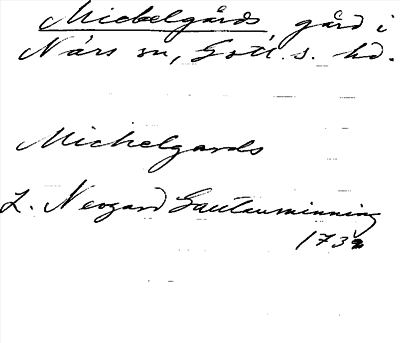 Michelgårds, gård i
Närs sn, Gotl. s. hd.
Michelgards
L. Neogard Gautauminning
1732